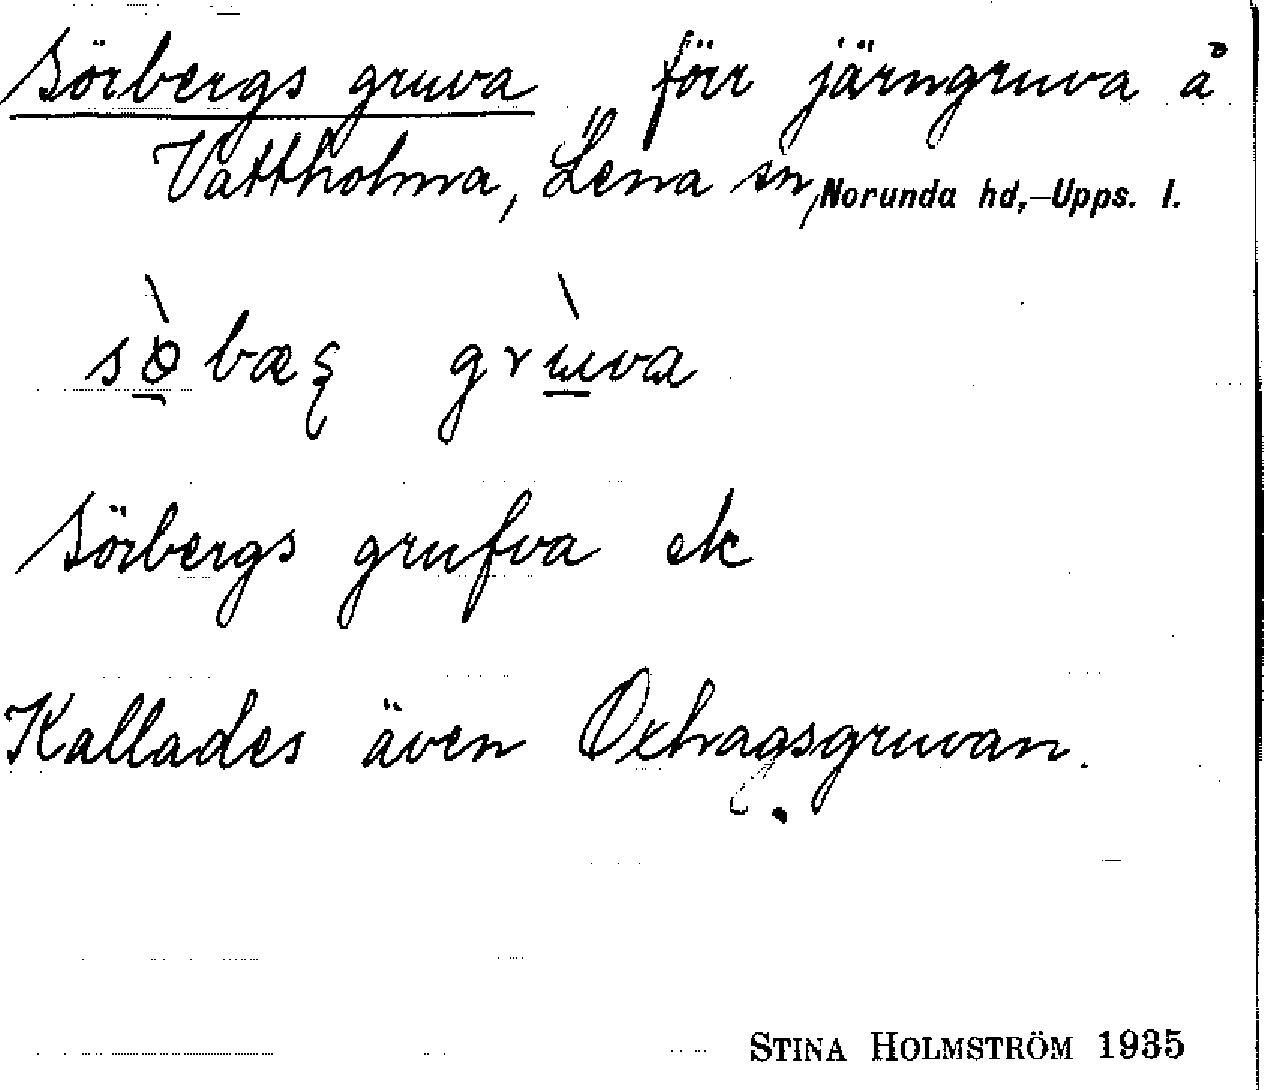 Sörbergs gruva förr järngruva å
Vattholma, Lena sn, Norunda hd, Upps. l.
gruva
Sörbergs grufva ek
Kallades även Oxhagsgruvan.
STINA HOLMSTRÖM 1935